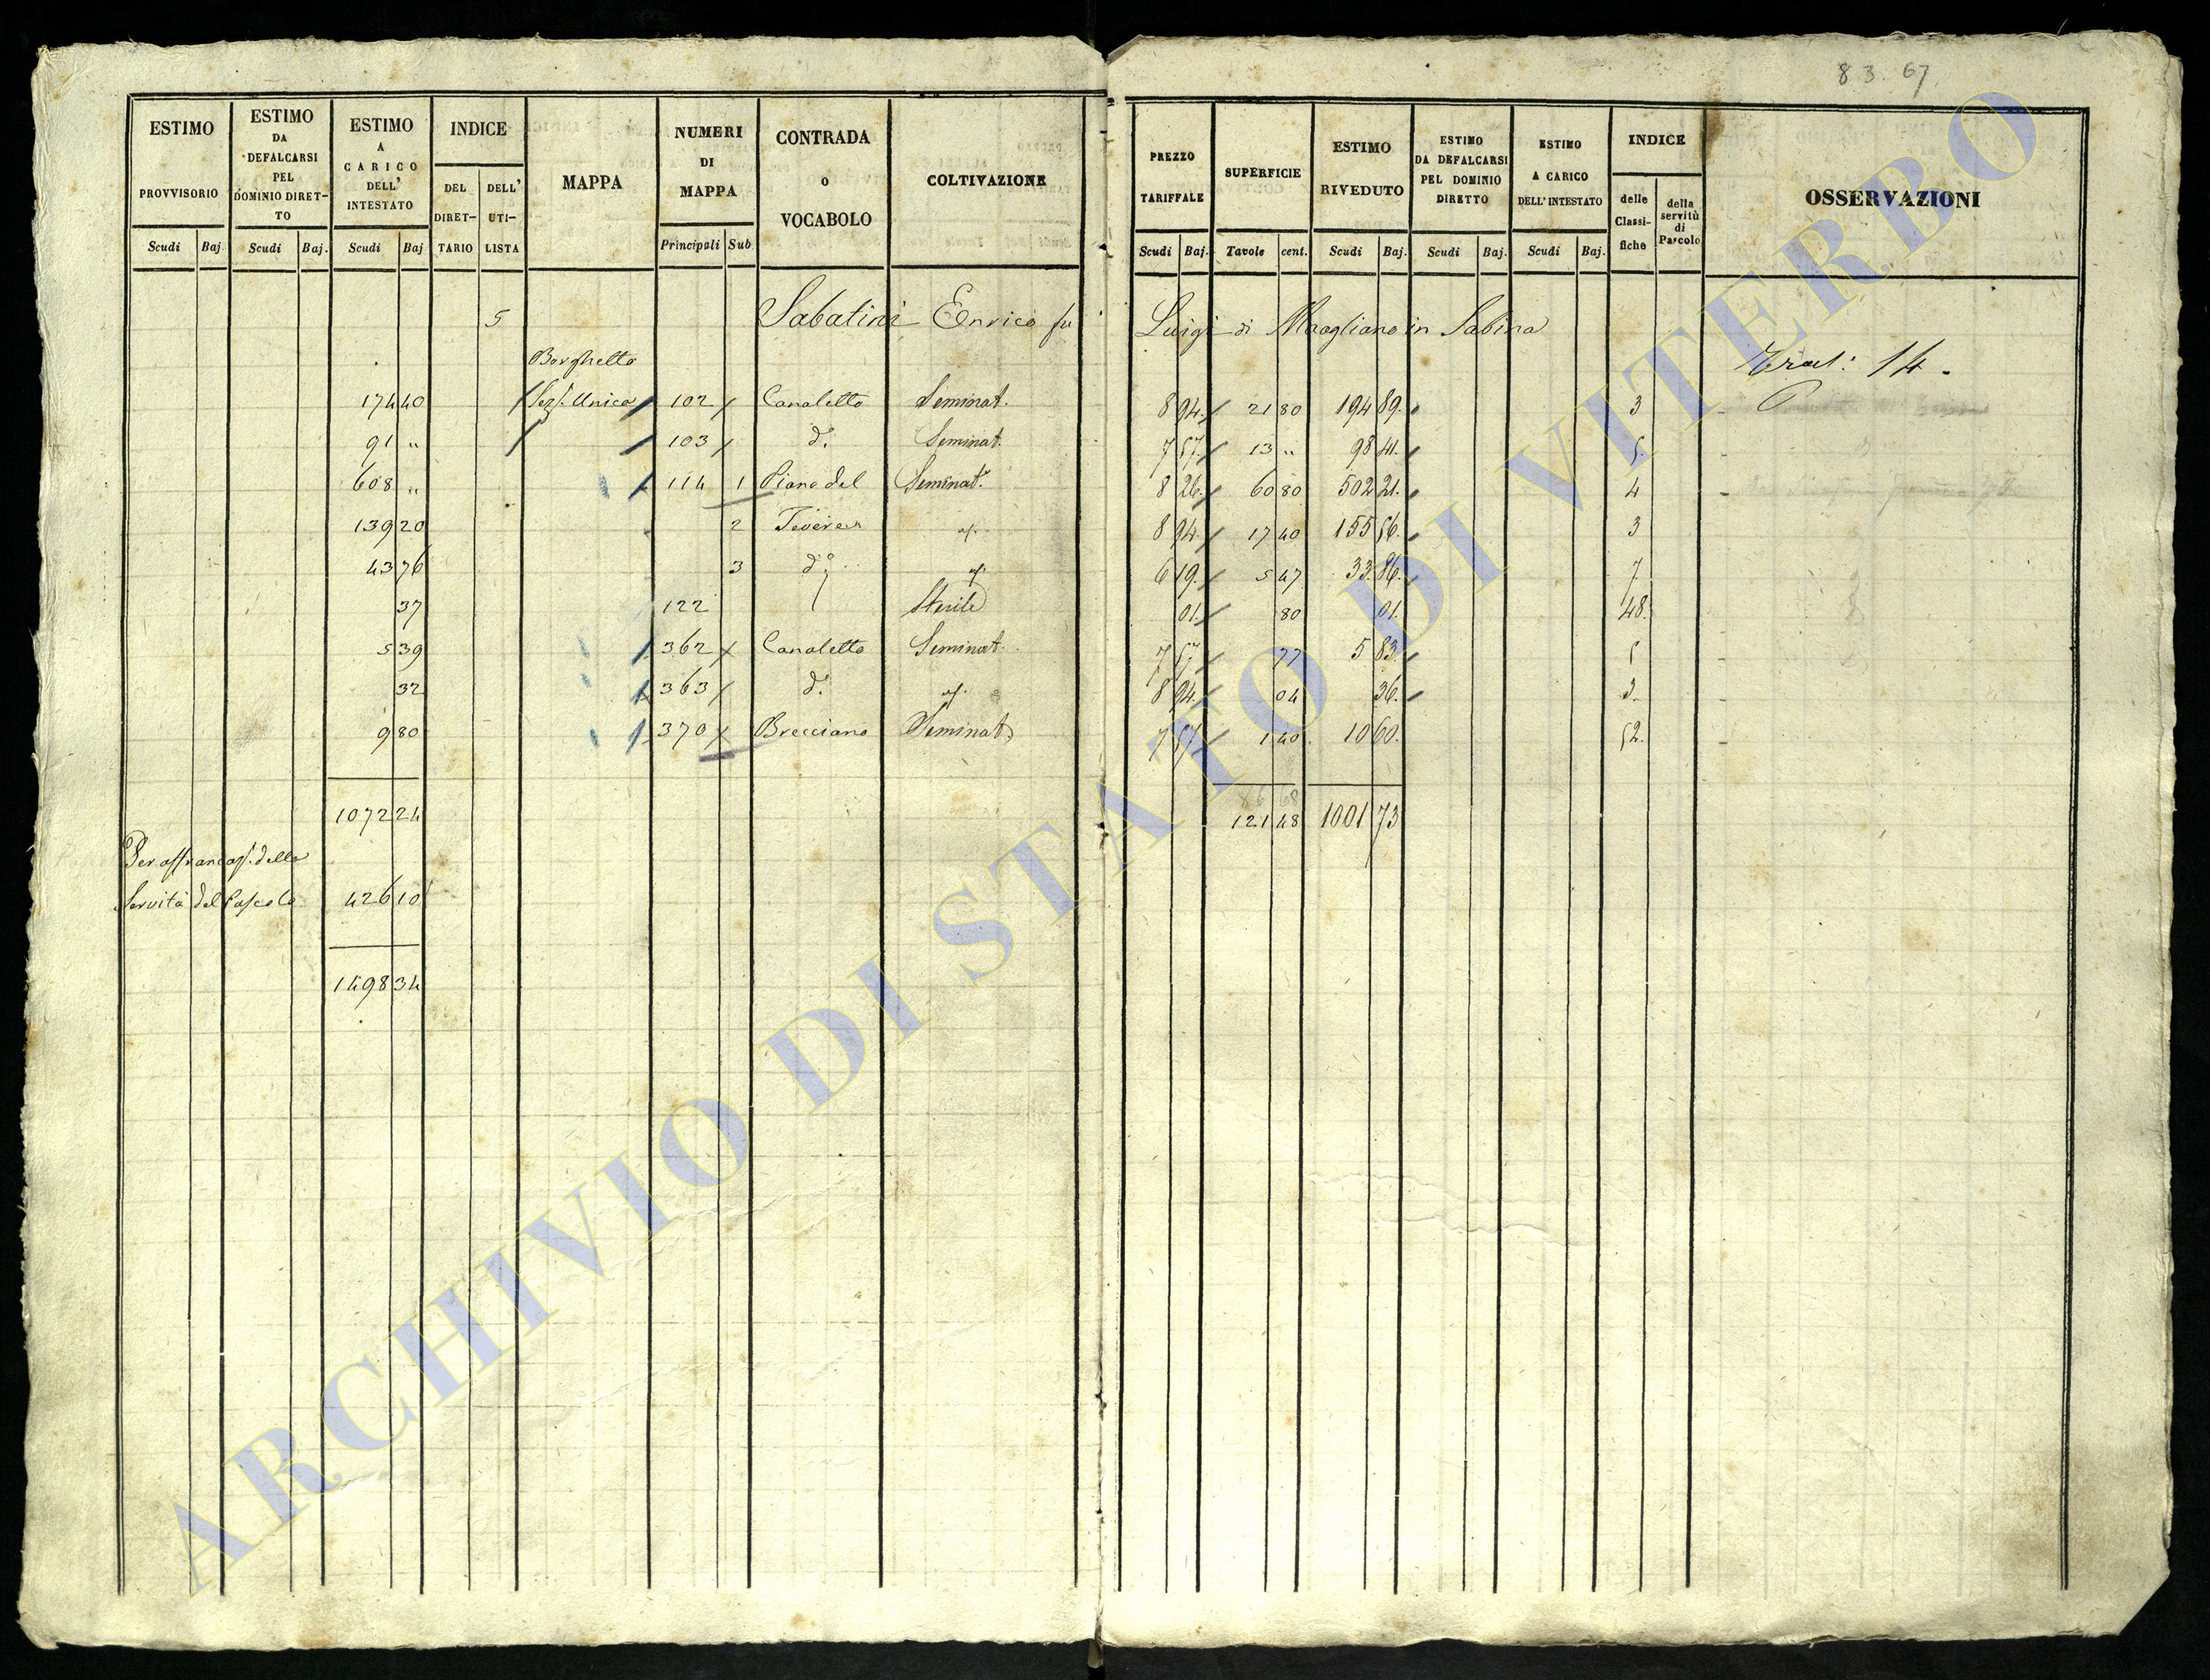 83.67
ESTIMO PROVVISORIO | ESTIMO DA DEFALCARSI PEL DOMINIO DIRETTO | ESTIMO A CARICO DELL' INTESTATO | INDICE | MAPPA | NUMERI DI MAPPA | CONTRADA O VOCABOLO | COLTIVAZIONE | PREZZO TARIFFALE | SUPERFICIE | ESTIMO RIVEDUTO | ESTIMO DA DEFALCARSI PEL DOMINIO DIRETTO | ESTIMO A CARICO DELL' INTESTATO | INDICE | OSSERVAZIONI
DEL DIRET-TARIO | DELL' UTI-LISTA | delle Classi-fiche | della servitù di Pascolo
Scudi | Baj. | Scudi | Baj. | Scudi | Baj | Principali | Sub | Scudi | Baj. | Tavole | cent. | Scudi | Baj. | Scudi | Baj. | Scudi | Baj.
5 Sabatini Enrico fu Luigi di Magliano in Sabina
Borghetto 14.
174 40 Sez. Unica 102 Canaletto Seminat. 8 94. 21 80 194 89. 3
91 " 103 d.o Seminat. 7 57. 13 " 98 41. 5.
608 " 114 1 Piano del Seminat. 8 26. 60 80 502 21. 4
139 20 2 Tevere 8 94. 17 40 155 56. 3
43 76 3 d.o 6 19. 5 47 33 86. 7
37 122 Sterile 01. 80 01. 48.
5 39 362 Canaletto Seminat. 7 57 77 5 83. 5
32 363 d.o 8 94. 04 36. 3.
9 80 370 Brecciano Seminat. 7 57 1 40 10 60. 52.
1072 24 121 48 1001 73
Per affrancaz. della
Servitù del Pascolo 426 10
1498 34
ARCHIVIO DI STATO DI VITERBO